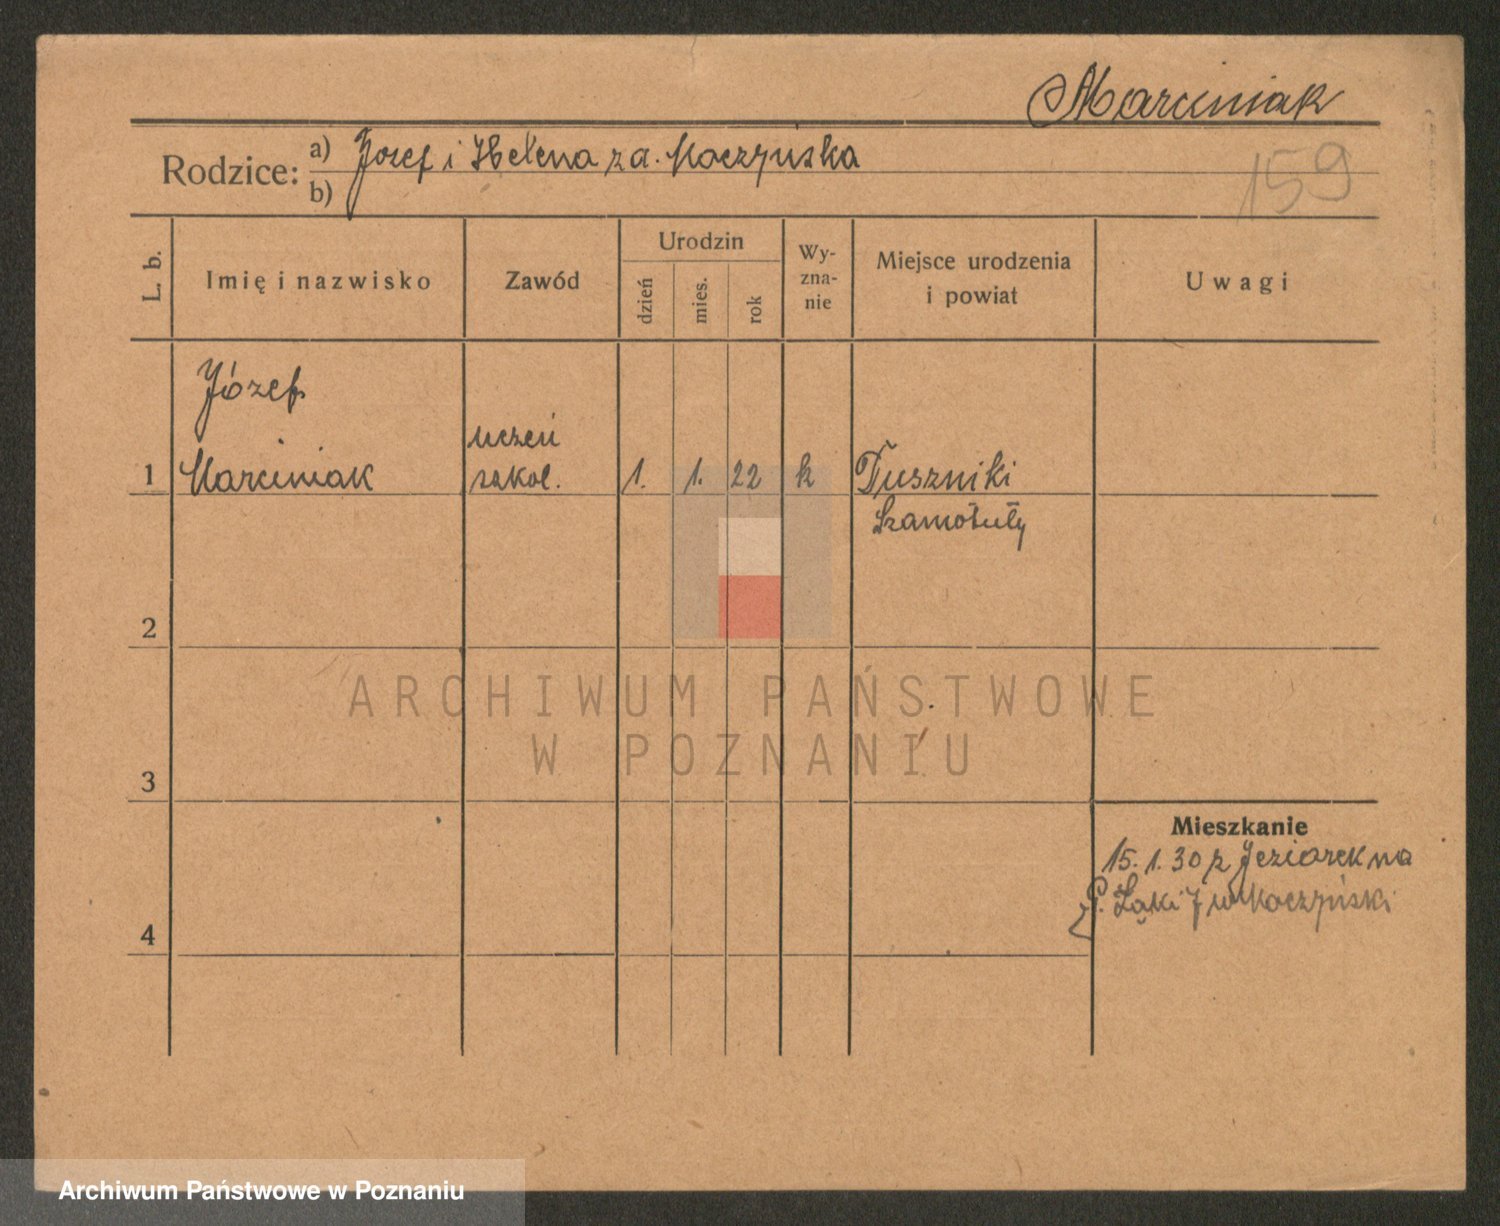 Marciniak
Rodzice: a) Józef i Helena za. Kaczyńska
b)
159
L. b. Imię i nazwisko Zawód Urodzin dzień mies. rok Wy-zna-nie Miejsce urodzenia i powiat Uwagi
Józef
uczeń
1 Marciniak szkol. 1. 1. 22 k Duszniki
Szamotuły
2
ARCHIWUM PAŃSTWOWE
W POZNANIU
3
Mieszkanie
15. 1. 30 z Jeziorek na
P. Łąki 7 w
4
Archiwum Państwowe w Poznaniu